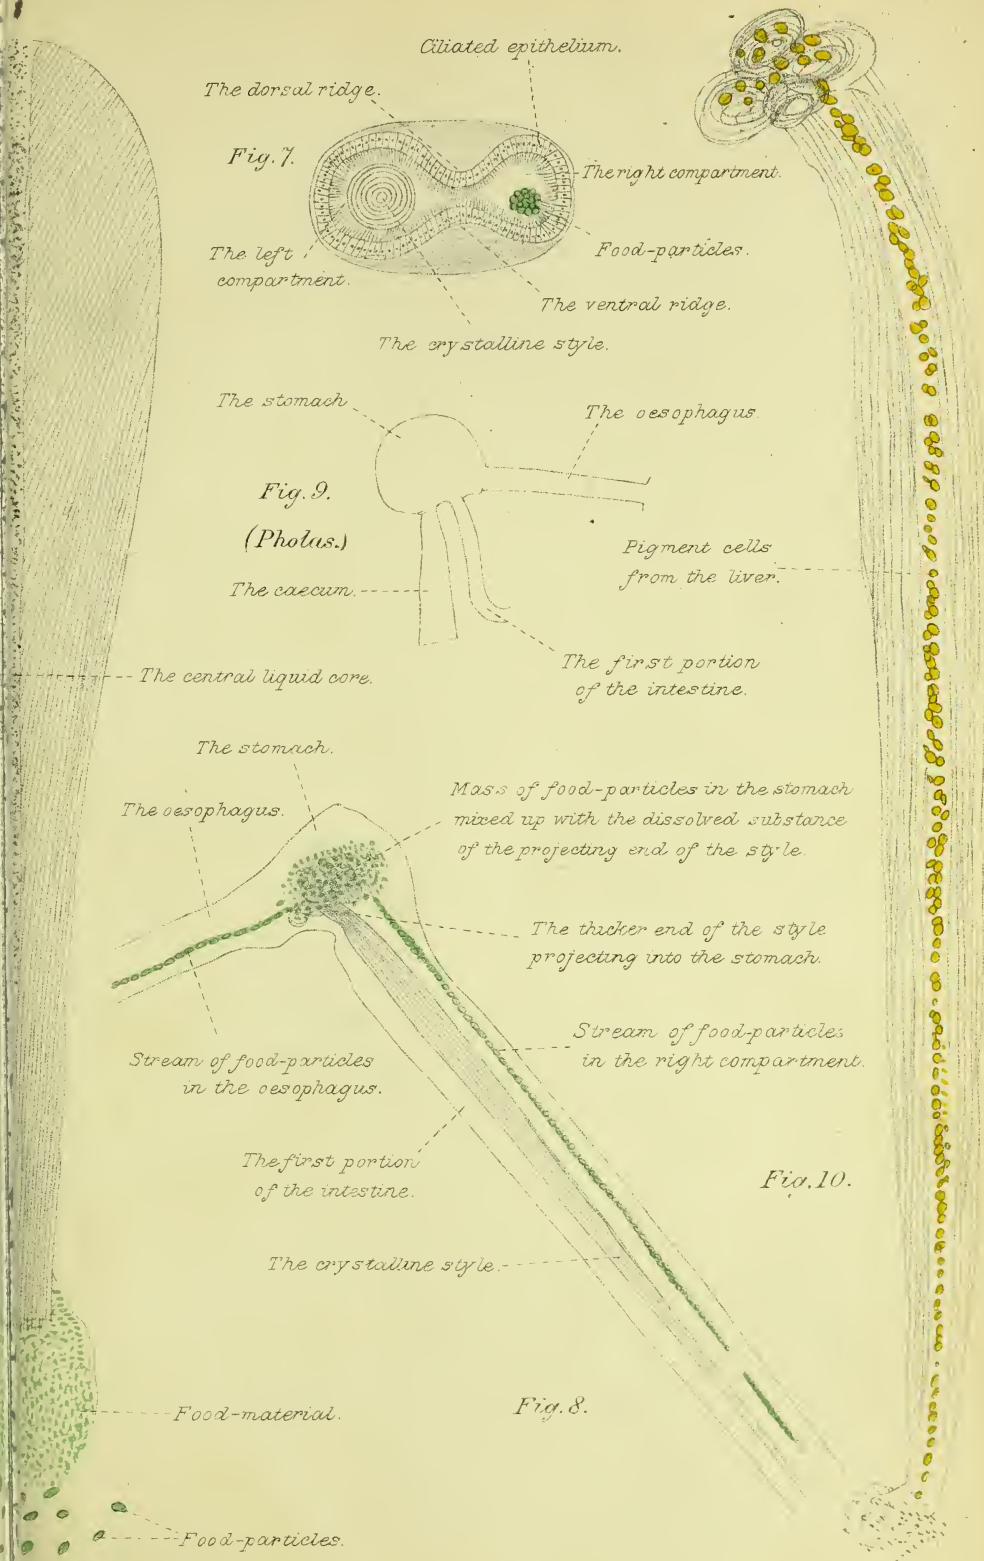 Ciliated epithelium.
The dorsal ridge.
Fig. 7.
The right compartment.
The left
compartment.
Food-particles.
The ventral ridge.
The crystalline style.
The stomach
The oesophagus.
Fig. 9.
(Pholas.)
Pigment cells
from the liver.
The caecum.
The first portion
of the intestine.
The central liquid core.
The stomach.
The oesophagus.
Mass of food-particles in the stomach
mixed up with the dissolved substance
of the projecting end of the style.
The thicker end of the style
projecting into the stomach.
Stream of food-particles
in the right compartment.
Stream of food-particles
in the oesophagus.
The first portion
of the intestine.
Fig. 10.
The crystalline style.
Fig. 8.
Food-material.
Food-particles.